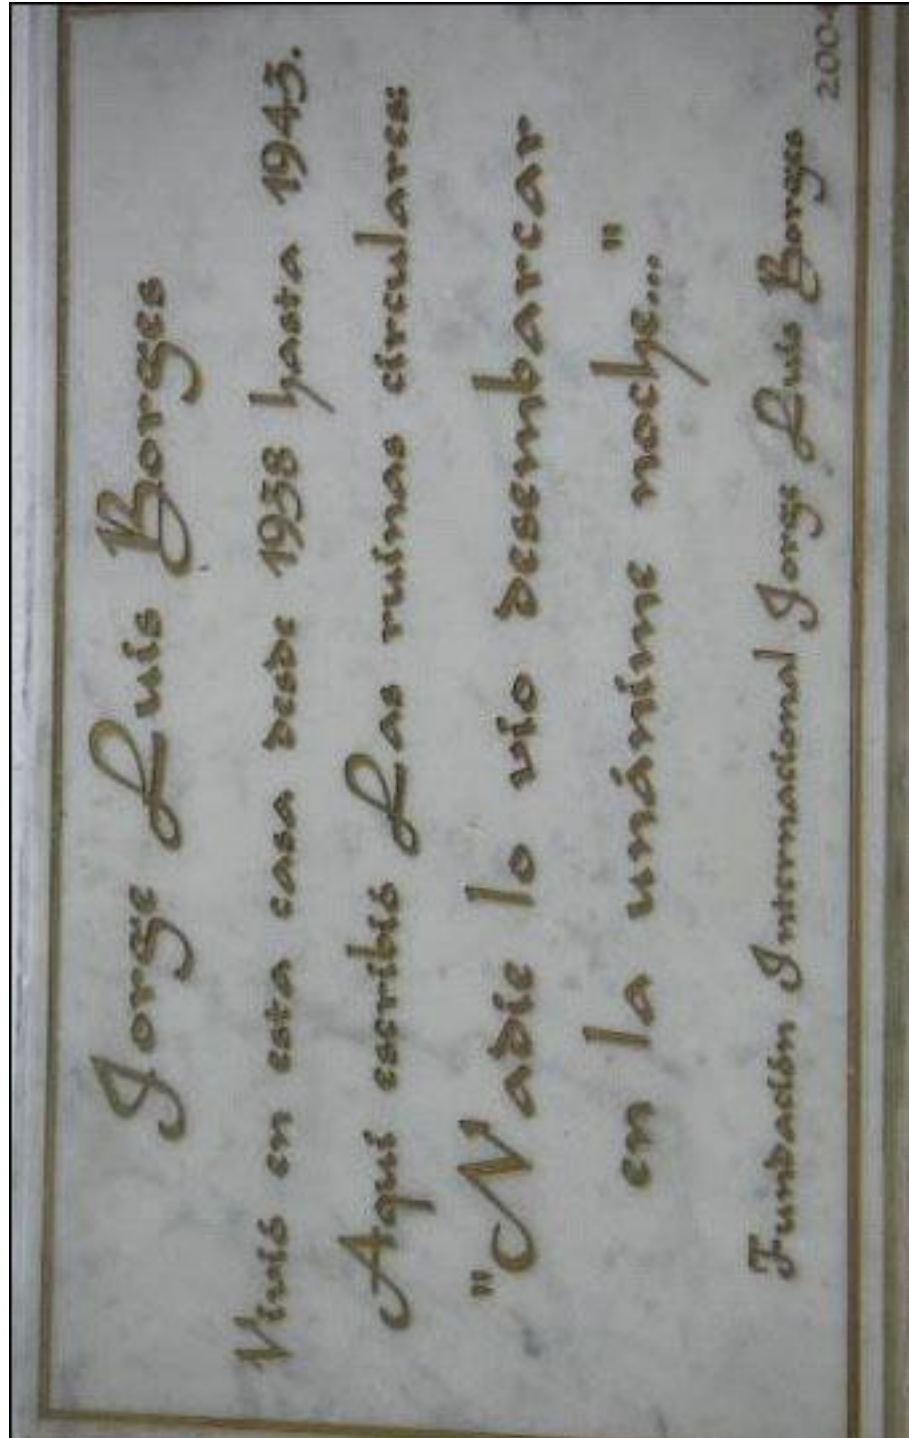 Jorge Luis Borges
Vivió en esta casa desde 1938 hasta 1943.
Aquí escribió Las ruinas circulares:
"Nadie lo vio desembarcar
en la unánime noche..."
Fundación Internacional Jorge Luis Borges